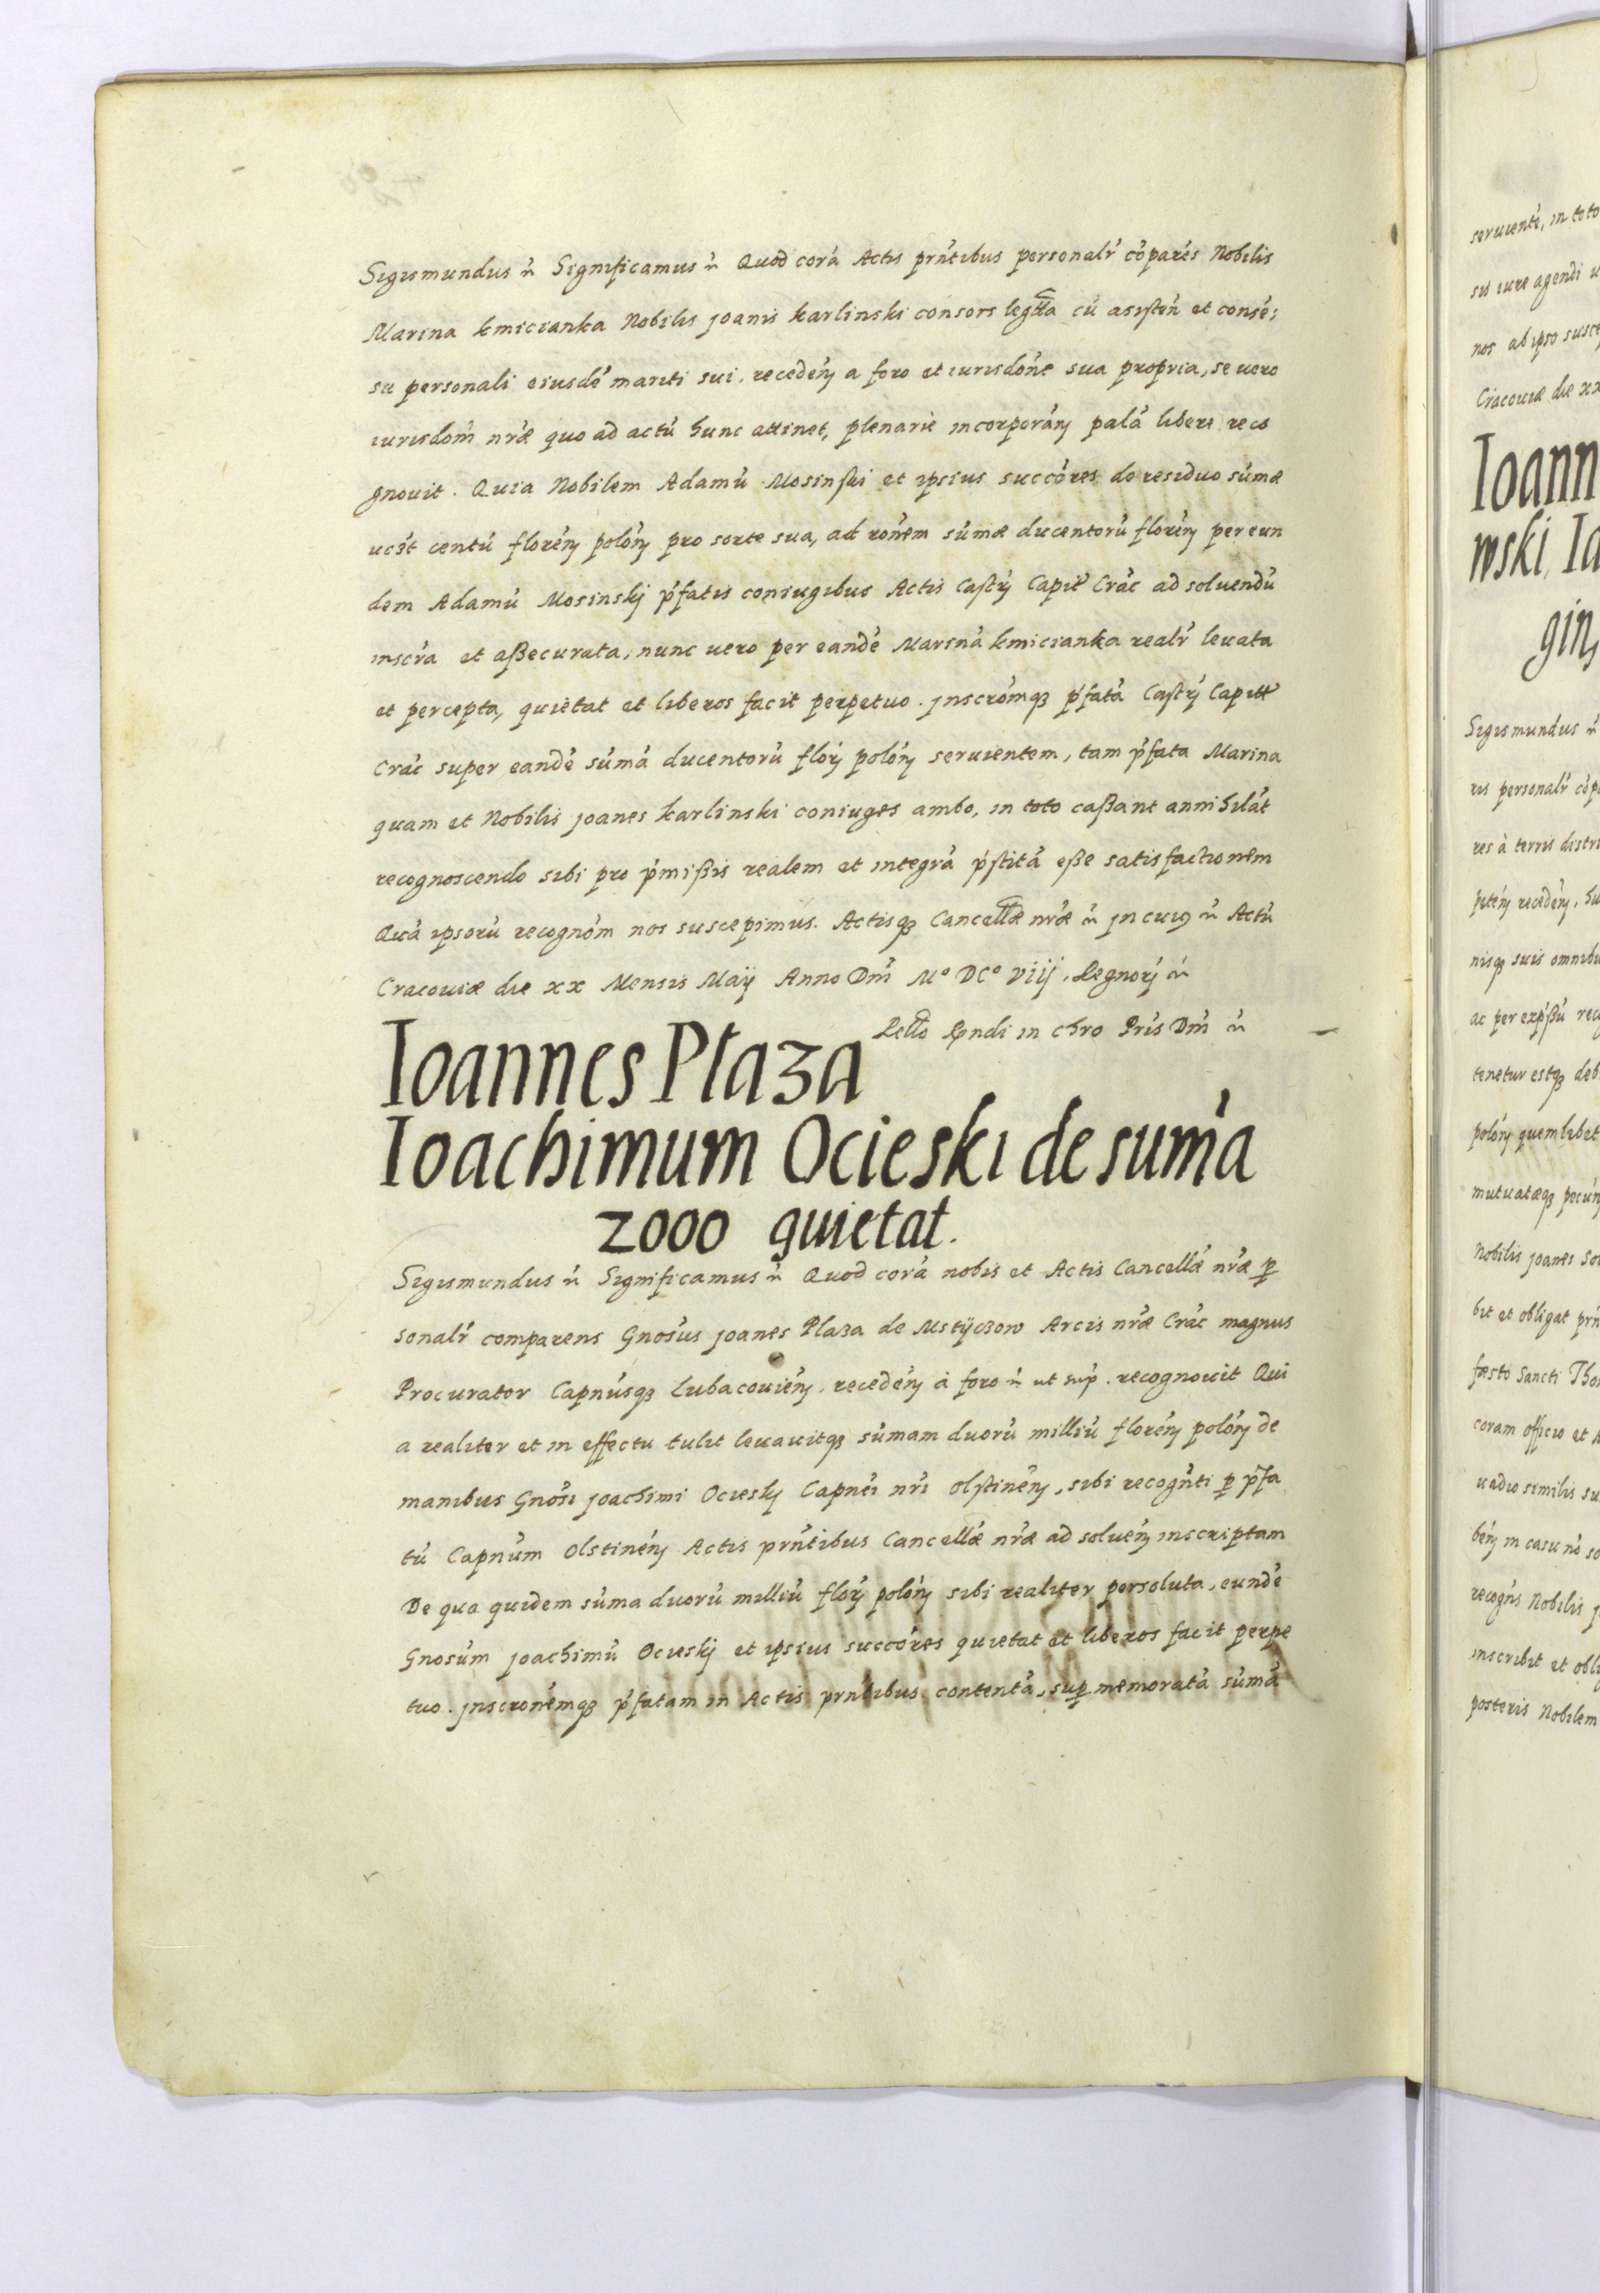 Sigismundus ŕ Significamus ŕ Quod corá Actis prńtibus personalŕ cóparés Nobilis
Marina kmicianka Nobilis joanis karlinski consors legtta cú asisteń et consé:
su personali eiusdé mariti sui, recedéń a foro et iurisdońe sua propria, se uero
iurisdoḿ nŕæ quo ad actú hunc attinet, plenarie incorporáń palá libere reco
gnouit. Quia Nobilem Adamú Mosinski et ipsius succóres de residuo súmæ
uczt centú floréń polóń pro sorte sua, ad rońem súmæ ducentorú floréń per eun
dem Adamú Mosinskj ṕfatis coniugibus Actis Castŕ Capitt Crác ad soluendú
inscŕa et aßecurata, nunc uero per eandé Mariná kmicianka realŕ leuata
et percepta, quietat et liberos facit perpetuo. jnscrómq3 ṕfatá Castŕ Capitt
Crác super eandé súmá ducentorú floŕ polóń seruientem, tam ṕfata Marina
quam et Nobilis joanes karlinski coniuges ambo, in toto caßant annihilát
recognoscendo sibi pro ṕmißis realem et integrá ṕstitá eße satisfactionem
Quá ipsorú recognóm nos suscepimus. Actisq3 Cancellæ nŕæ ŕ jn cuiq ŕ Actú
Cracouiæ die xx Mensis Maij Anno Dḿ M° DC° viij. Regnorj ŕ
Rello Rndi in chro Pŕis Dḿ ŕ
Ioannes Plaza
Ioachimum Ocieski de sum̓a
2000 quietat.
Sigismundus ŕ Significamus ŕ Quod corá nobis et Actis Cancellæ nŕæ ꝑ
sonalŕ comparens Gnośus joanes Plaza de Mstÿczow Arcis nŕæ Crác magnus
Procurator Capnúsq3 Lubacouiéń, recedéń á foro ŕ ut suṕ. recognouit Qui
a realiter et in effectu tulit leuauitq3 súmam duorú milliú floréń polóń de
manibus Gnośi joachimi Ocieskj Capnéi nŕi Olstinéń, sibi recogńti ꝑ ṕfa
tú Capnúm Olstinéń Actis prńtibus Cancellæ nŕæ ad soluéń inscriptam
De qua quidem súma duorú milliú floŕ polóń sibi realiter persoluta, eundé
Gnosúm joachimú Ocieskj et ipsius succóres quietat et liberos facit perpe
tuo. jnscronémq3 ṕfatam in Actis prńtibus contentá, suꝑ memoratá súmá
seruienté, in toto
sis iure agendi
nos ab ipso susce
Cracouiæ die xx
Ioann
wski, Ia
gin
Sigismundus ŕ
ris personalŕ cóp
res á terris distri
petéń recedéń, hu
nisq3 suis omnibu
ac per exṕßú rec
tenetur estq3 deb
polóń quemlibet
mutuatæq3 pecúń
Nobilis joanes
bit et obligat prń
fæsto Sancti Tho
coram officio et
uadio similis su
béń in casu nó so
recogńs Nobilis j
inscribit et obli
posteris Nobilem